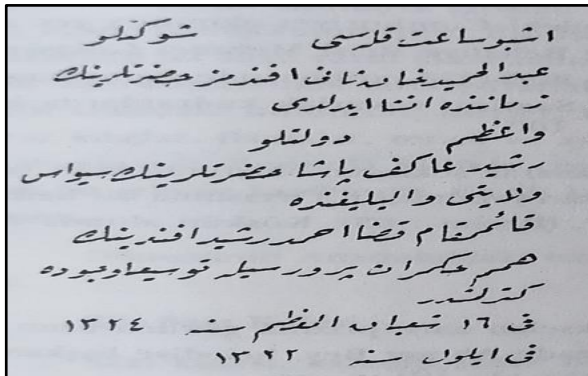 اشبو ساعت قلەسی شوكتلو
عبدالحميد خان ثانی افندمز حضرتلرينك
زماننده انشا ايدلدی
واعظم دولتلو
رشيد عاكف پاشا حضرتلرينك سيواس
ولايتی واليليغنده
قائممقام قضا احمد رشيد افندينك
همم پرورسيله
كتدر
فی ١٦ شعبان المعظم سنه ١٣٢٤
فی ايلول سنه ١٣٢٢